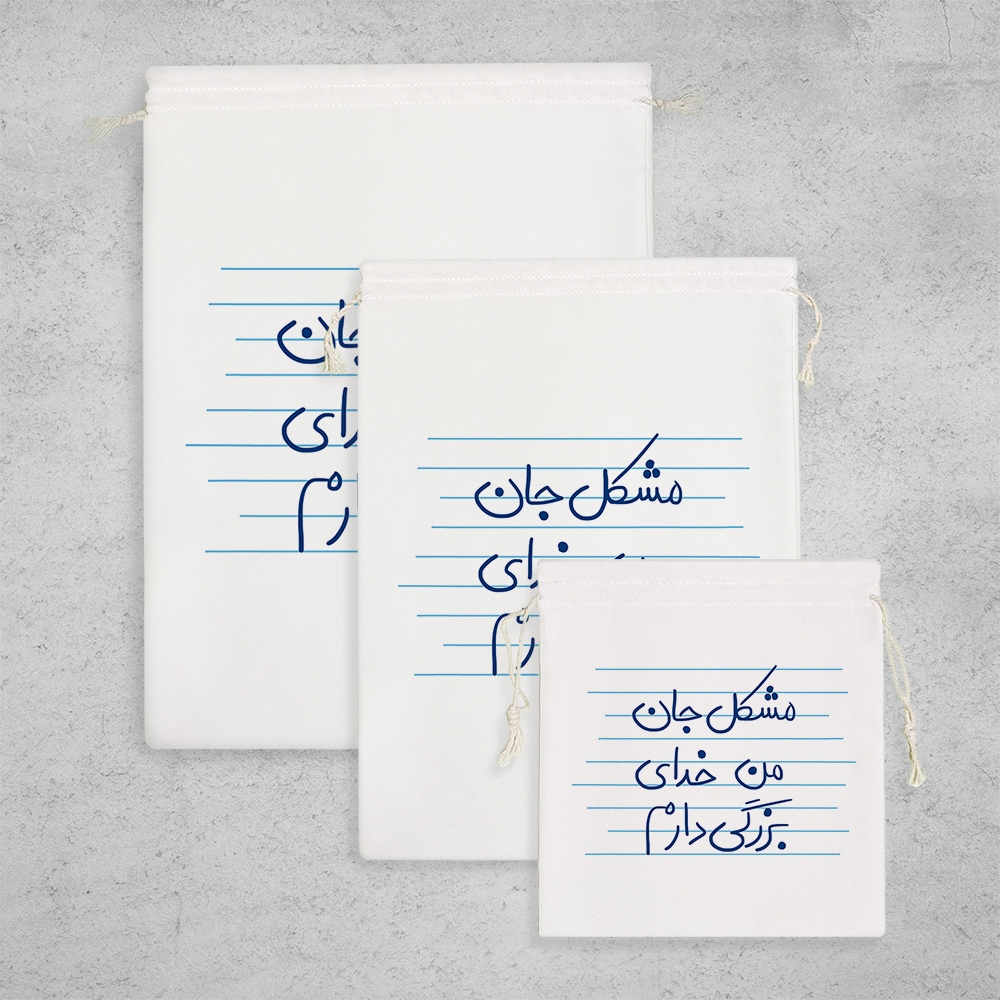 جان
رای
رم
مشکل جان
خدای
رم
مشکل جان
من خدای
بزرگی دارم